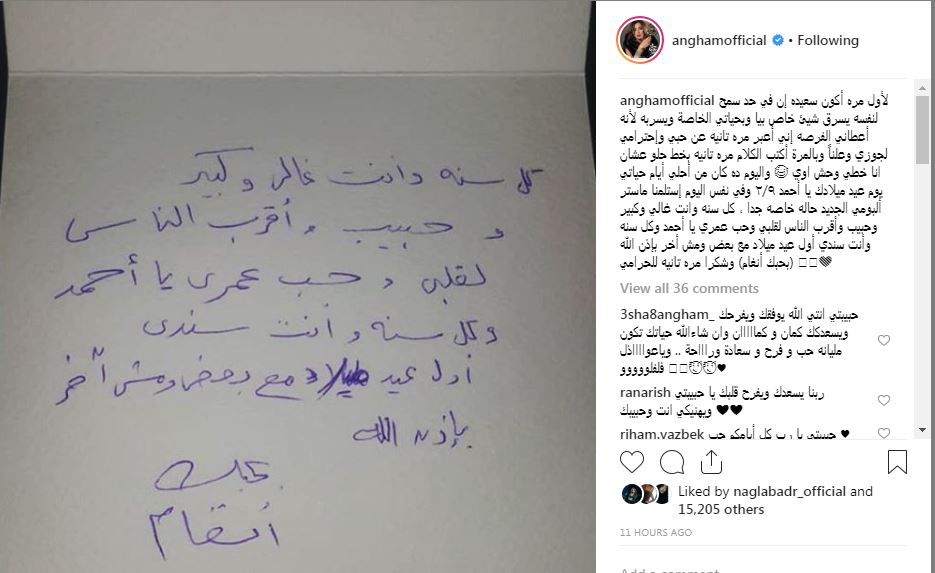 كل سنه وانت غالى وكبير
و حبيب وأقرب الناس
لقلبى وحب عمرى يا أحمد
وكل سنه وأنت سندى
أول عيد ميلاد مع بعض ومش آخر
بإذن الله
بحبك
أنغام
anghamofficial • Following
anghamofficial لأول مره أكون سعيده إن في حد سمح
لنفسه يسرق شيئ خاص بيا وبحياتي الخاصة ويسربه لأنه
أعطاني الفرصه إني أعبر مره تانيه عن حبي وإحترامي
لجوزي وعلناً وبالمرة أكتب الكلام مره تانيه بخط حلو عشان
انا خطي وحش اوي 😊 واليوم ده كان من أحلي أيام حياتي
يوم عيد ميلادك يا أحمد ٢/٩ وفي نفس اليوم إستلمنا ماستر
ألبومي الجديد حاله خاصه جدا ، كل سنه وانت غالي وكبير
وحبيب وأقرب الناس لقلبي وحب عمري يا أحمد وكل سنه
وأنت سندي أول عيد ميلاد مع بعض ومش أخر بإذن الله
(بحبك أنغام) وشكرا مره تانيه للحرامي
View all 36 comments
3sha8angham_ حبيبتي انتي الله يوفقك ويفرحك
ويسعدكك كمان و كماااان وان شاءالله حياتك تكون
مليانه حب و فرح و سعادة وراااحة .. وياعواااذل
فلفلوووووو
ranarish ربنا يسعدك ويفرح قلبك يا حبيبتي
ويهنيكي انت وحبيبك ♥♥
riham.yazbek حبيبتي يا رب كل أيامكم حب ♥
Liked by naglabadr_official and
15,205 others
11 HOURS AGO
Add a comment